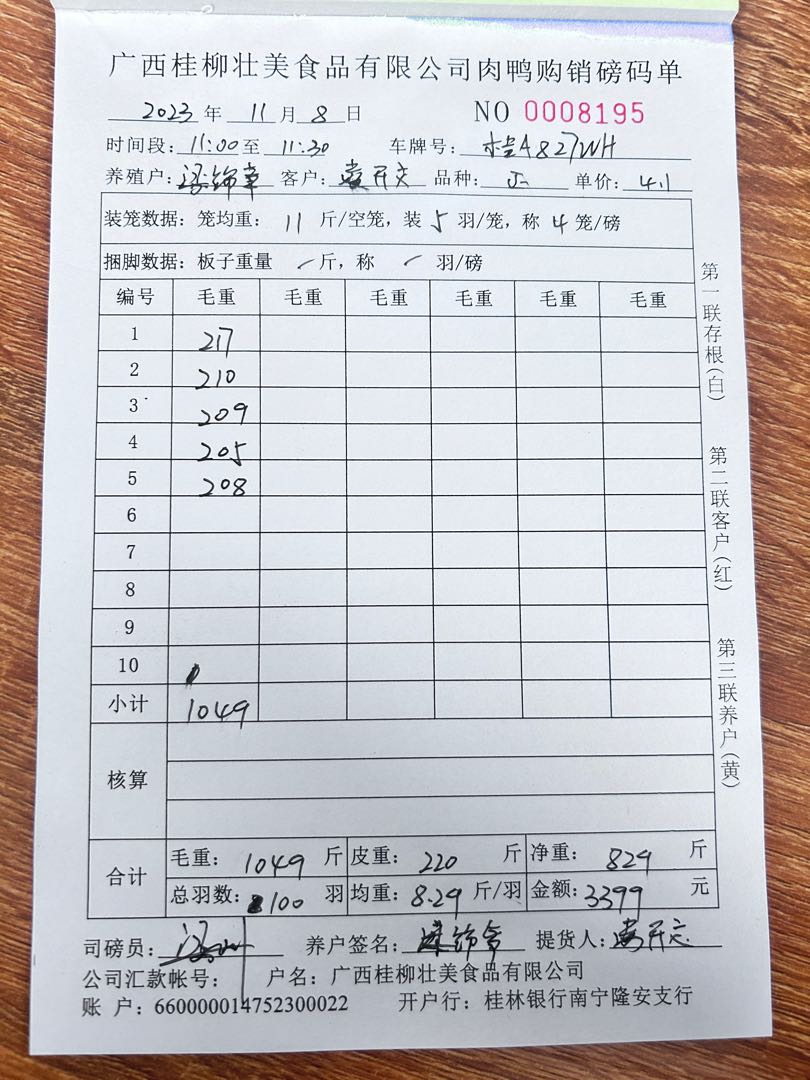 广西桂柳壮美食品有限公司肉鸭购销磅码单
2023 年 11 月 8 日 NO 0008195
时间段: 11:00 至 11:30 车牌号: 桂A827WH
养殖户: 客户: 品种: 单价: 4.1
装笼数据: 笼均重: 11 斤/空笼, 装 5 羽/笼, 称 4 笼/磅
捆脚数据: 板子重量 斤, 称 羽/磅
编号 毛重 毛重 毛重 毛重 毛重 毛重
1 217
2 210
3 209
4 205
5 208
6
7
8
9
10
小计 1049
核算
合计
毛重: 1049 斤 皮重: 220 斤 净重: 829 斤
总羽数: 100 羽 均重: 8.29 斤/羽 金额: 3399 元
司磅员: 养户签名: 提货人:
公司汇款帐号: 户名: 广西桂柳壮美食品有限公司
账 户: 660000014752300022 开户行: 桂林银行南宁隆安支行
第一联存根(白)
第二联客户(红)
第三联养户(黄)